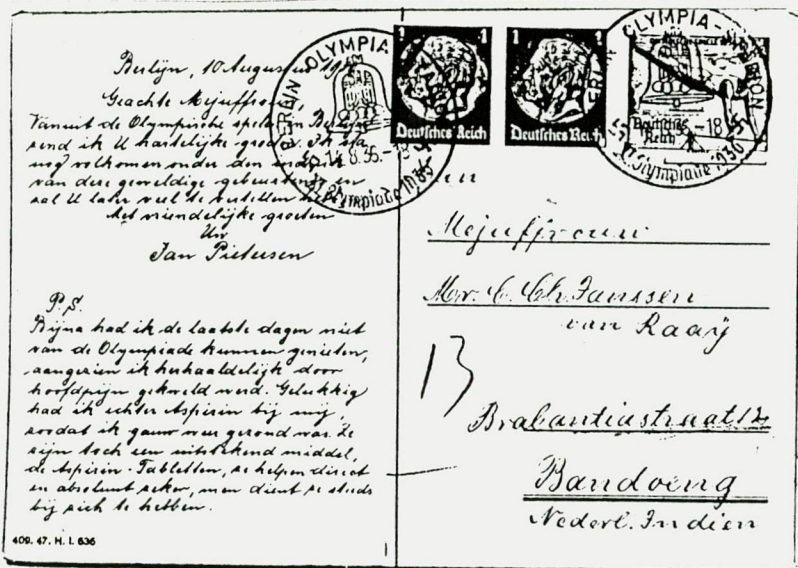 Berlijn, 10 Augustus
Geachte Mejuffrouw,
Vanuit de Olympische spelen
zend ik U hartelijke groeten. Ik sta
nog volkomen onder den indruk
van deze geweldige gebeurtenis en
zal U later veel te vertellen
Met vriendelijke groeten
Uw
Jan Pietersen
P.S.
Bijna had ik de laatste dagen niet
van de Olympiade kunnen genieten,
aangezien ik herhaaldelijk door
hoofdpijn gekweld werd. Gelukkig
had ik echter Aspirin bij mij,
zoodat ik gauw weer gezond was. Ze
zijn toch een uitstekend middel,
de Aspirin-Tabletten, ze helpen direct
en absoluut zeker, men dient ze steeds
bij zich te hebben.
409. 47. H. I. 636
BERLIN OLYMPIA
14.8.36.
XI. Olympiade 1936
1
Deutsches Reich
1
Deutsches Reich
OLYMPIA-STADION
Deutsches
Reich
XI. Olympiade 1936
Mejuffrouw
Mr. C. Ch. Janssen
van Raaÿ
13
Brabantiastraat 12
Bandoeng
Nederl. Indien